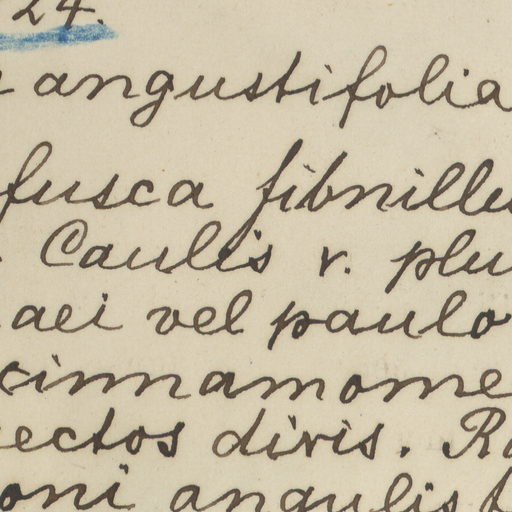 24.
angustifolia
fusca fibrillu
Caulis v. plu
aei vel paulo
cinnamome
ectos divis. Ra
oni angulis f